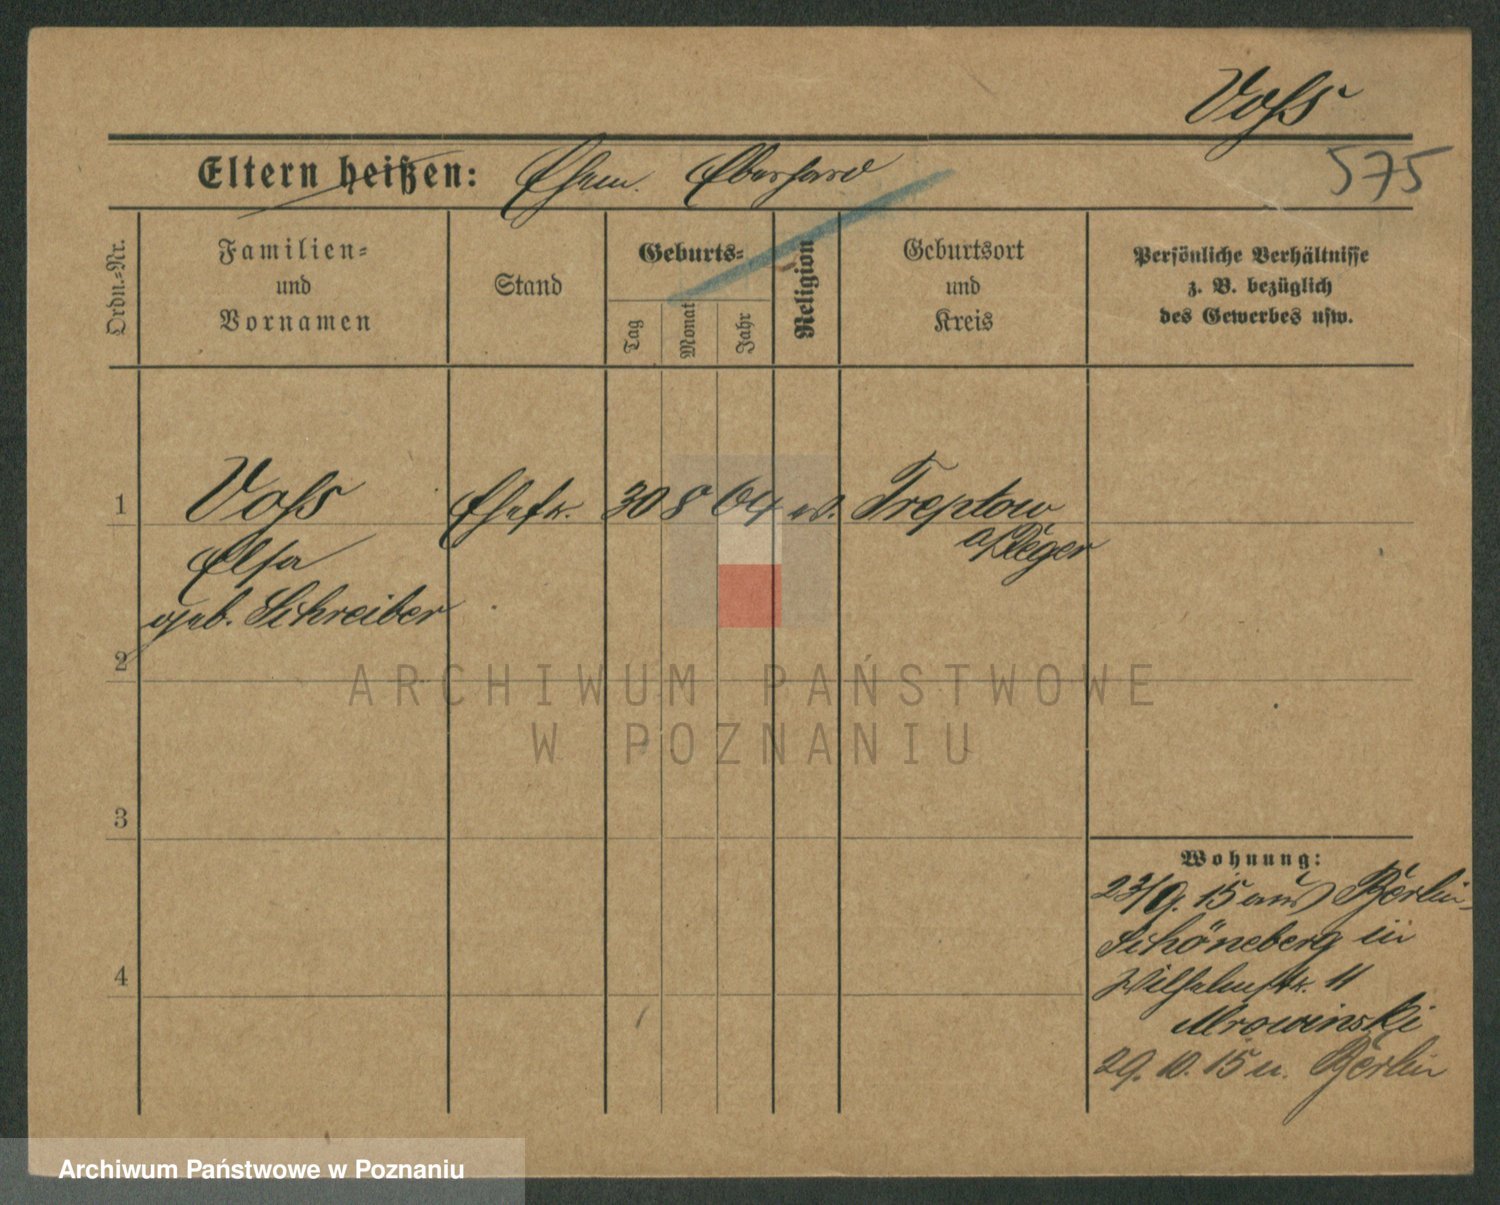 Voss
575
Eltern heißen: Ehem. Eberhard
Ordn.-Nr.
Familien- und Vornamen
Stand
Geburts-
Tag
Monat
Jahr
Religion
Geburtsort und Kreis
Persönliche Verhältnisse
z. B. bezüglich
des Gewerbes usw.
1 Voss Ehefr. 30 8 64 ev. Treptow
Elsa a/Rega
geb. Schreiber
2
ARCHIWUM PAŃSTWOWE
W POZNANIU
3
Wohnung:
23/9. 15 aus Berlin-
Schöneberg in
4
Wilhelmstr. 11
Mrowinski
29. 10. 15 n. Berlin
Archiwum Państwowe w Poznaniu